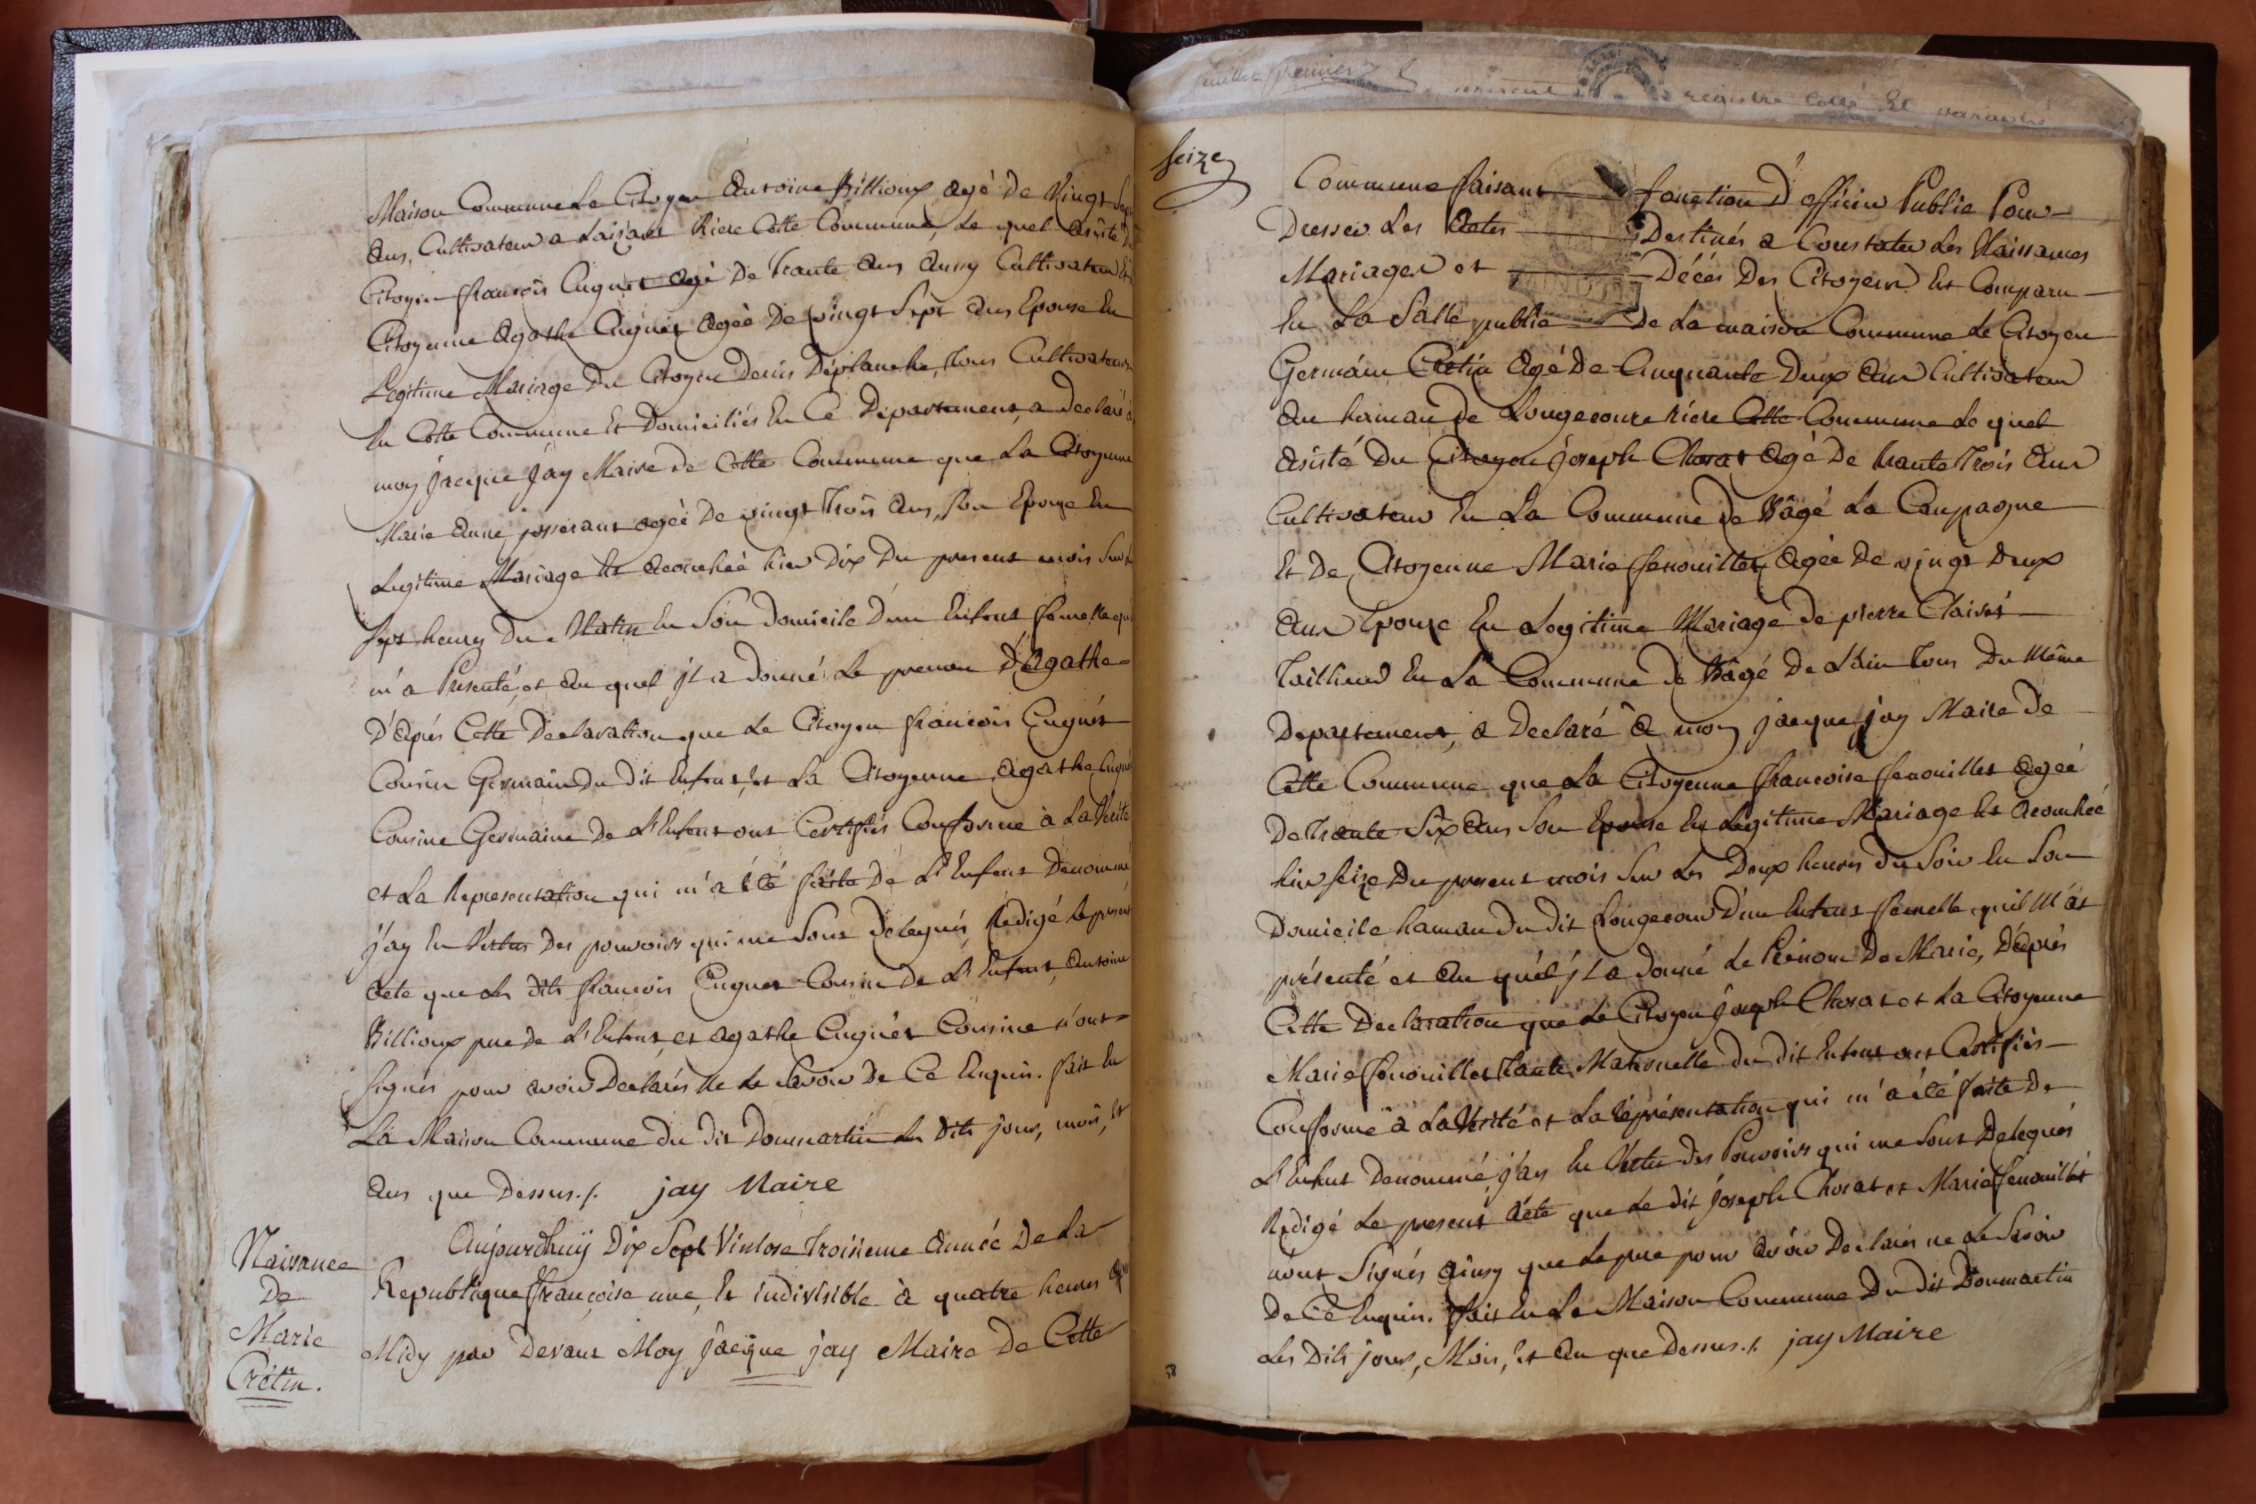 Maison Commune Le Citoyen Antoine Billioux agé de Vingt Sept
ans, Cultivateur a Laisard Riere Cette Commune, Le quel Asisté Du
Citoyen françois Cugnet agé De trante ans aussy Cultivateur Et
Citoyenne Agathe Cugnet Agéé De vingt Sept ans Epouse En
Legitime Mariage Du Citoyen Denis Déplanche, tous Cultivateurs
En Cette Commune Et Domiciliés En Ce Departement, a Declaré a
moy Jacque Jay Maire de Cette Commune que La Citoyenne
Marie Anne josserant agéé De vingt Trois ans, Son Epouze En
Legitime Mariage Est Acouchéé hier Dix Du present mois Sur
Sept heures Du Matin En Son Domicile D'un Enfant femelle qu
m'a Presenté, et Au quel jl a Donné Le prenom D'Agathe
D'Après Cette Declaration que Le Citoyen francois Cugnet
Cousin Germain Du Dit Enfant, et La Citoyenne Agathe Cugnet
Cousine Germaine De L'Enfant ont Certifiés Conforme à La Vérité
et La Representation qui m'a été faite De L'Enfant Denommé
j'ay En Vertu Des pouvoirs qui me Sont Delegués, Rédigé Le present
Acte que Les Dits francois Cugnet Cousin De L'Enfant, Antoine
Billioux pere De L'Enfant, et Agathe Cugnet Cousine n'ont
Signés pour avoir Declarés Ne Le Savoir De Ce Enquis. fait En
La Maison Commune Du Dit Dommartin Les Dits jour, mois, Et
Ans que Dessus ./. jay Maire
Naissance
De
Marie
Crétin.
Aujourdhuÿ Dix Sept Vintose Troisieme Année De La
Republique françoise une, Et indivisible à quatre heures Ap
Midy par Devant Moy Jacque jay Maire De Cette
Seize
Commune faisant fonction D'officier Public Pour
Dresser Les Actes Destinés a Constater Les Naissances
Mariages et Décés Des Citoyens Est Comparu
En La Salle publie De La maison Commune Le Citoyen
Germain Crétin Agé De Cinquante Deux Ans Cultivateur
Au hamau De Longecour Riere Cette Commune Le quel
Asisté Du Citoyen Joseph Chorat Agé De trante Trois Ans
Cultivateur En La Commune De Bâgé La Campagne
Et De Citoyenne Marie fenouillet Agéé De vingt Deux
Ans Epouze En Legitime Mariage De pierre Clairet
Tailleur En La Commune De Bâgé De L'ain tous Du Même
Departement, a Declaré à moy jacque jay Maire De
Cette Commune que La Citoyenne francoise fenouillet Agéé
De Trante Six Ans Son Epouse En Legitime Mariage Est Acouchéé
hier Seize Du present mois Sur Les Deux heures Du Soir En Son
Domicile hamau Du Dit Longecour D'un Enfant femelle quil M'at
présenté et Au quél jl a Donné Le Prénom De Marie, D'après
Cette Declaration que Le Citoyen Joseph Chorat et La Citoyenne
Marie fenouillet Tante Maternelle Du Dit Enfant ont Certifiés
Conforme à La Vérité et La Représentation qui m'a été faite De
L'Enfant Denommé, j'ay En Vertu Des Pouvoirs qui me Sont Delegués
Redigé Le present Acte que Le Dit Joseph Chorat et Marie fenouillet
n'ont Signés Ainsy que Le pere pour Avoir Declarés ne Le Savoir
De Ce Enquis. fait En La Maison Commune Du Dit Dommartin
Les Dits jour, Mois, Et An que Dessus ./. jay Maire